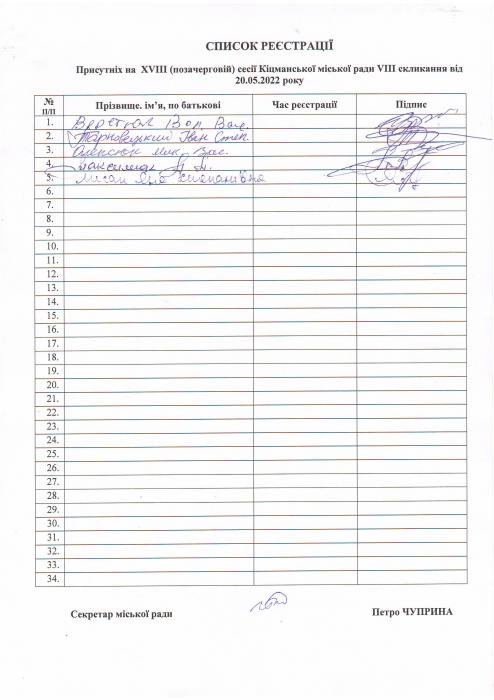 СПИСОК РЕЄСТРАЦІЇ
Присутніх на XVIII (позачерговій) сесії Кіцманської міської ради VIII скликання від
20.05.2022 року
№ п/п Прізвище. ім’я, по батькові Час реєстрації Підпис
1.
2. Тарновецкий Іван Степ.
3. Олексюк Мик. Вас.
4.
5.
6.
7.
8.
9.
10.
11.
12.
13.
14.
15.
16.
17.
18.
19.
20.
21.
22.
23.
24.
25.
26.
27.
28.
29.
30.
31.
32.
33.
34.
Секретар міської ради Петро ЧУПРИНА